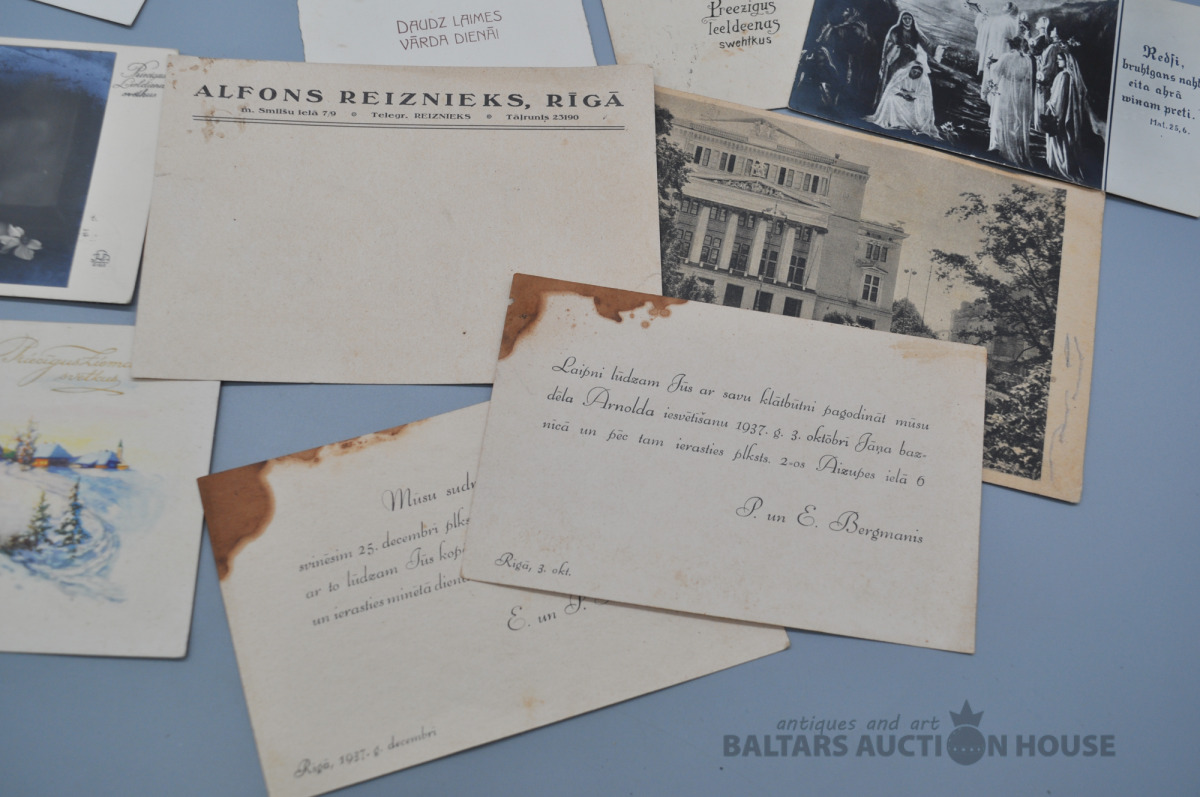 DAUDZ LAIMES
VĀRDA DIENĀI
Preezigus
leeldeenas
swehtkus
Redsi,
bruhtgans nahk
eita ahrâ
winam preti.
Mat. 25,6.
ALFONS REIZNIEKS, RĪGĀ
m. Smilšu ielā 7/9 • Telegr. REIZNIEKS • Tālrunis 23190
Laipni lūdzam Jūs ar savu klātbūtni pagodināt mūsu
dēla Arnolda iesvētīšanu 1937. g. 3. oktōbrī Jāņa baz-
nīcā un pēc tam ierasties plksts. 2-os Aizupes ielā 6
P. un E. Bergmanis
Rīgā, 3. okt.
Mūsu
svinēsim 25. decembrī
ar to lūdzam Jūs
un ierasties minētā
E. un
Rīgā, 1937. g. decembrī
antiques and art
BALTARS AUCTION HOUSE